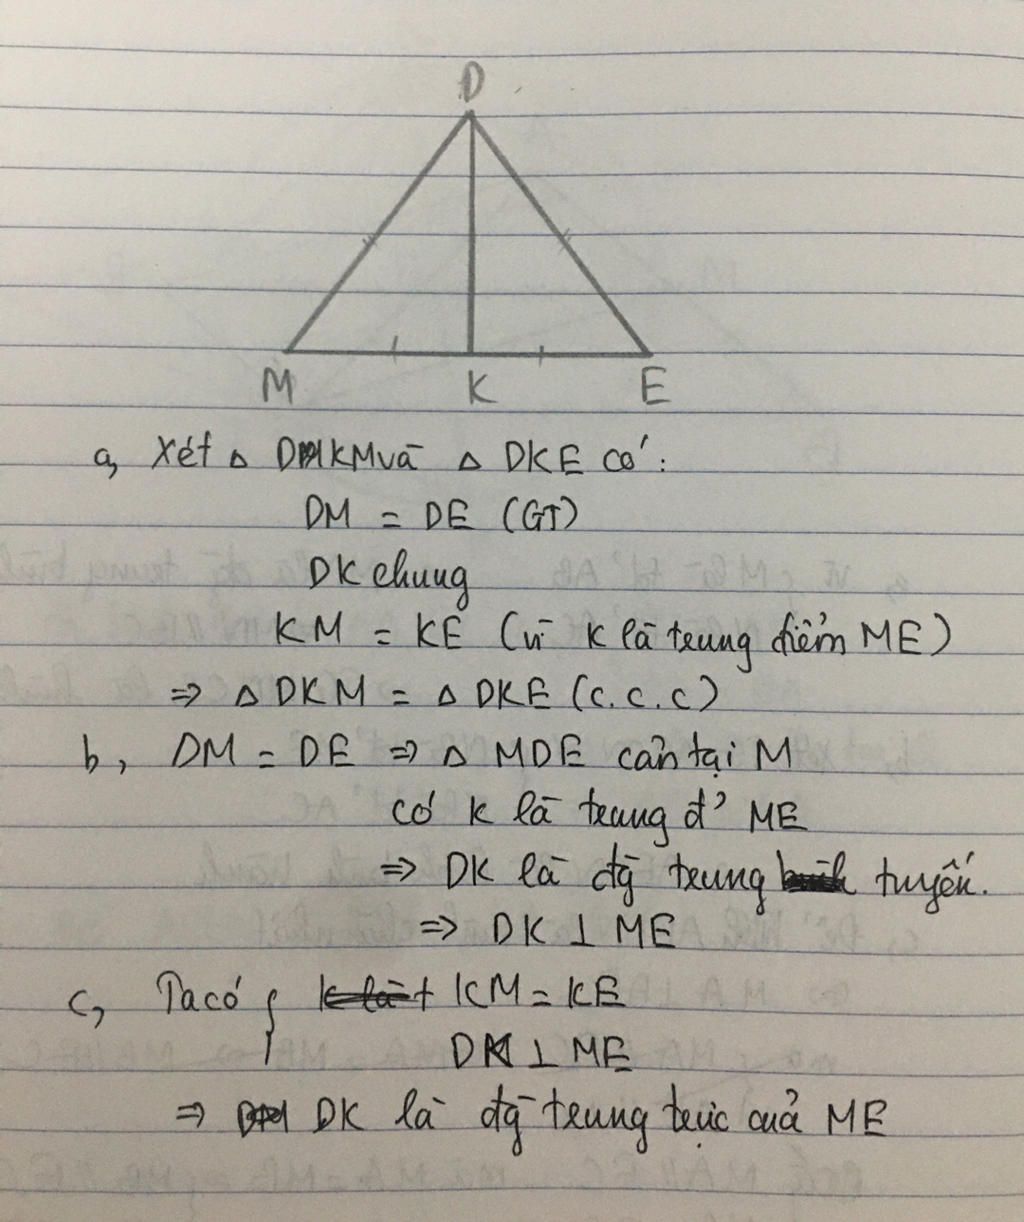 D
M K E
a, Xét △ DKM và △ DKE có:
DM = DE (GT)
DK chung
KM = KE (vì K là trung điểm ME)
⇒ △ DKM = △ DKE (c.c.c)
b, DM = DE ⇒ △ MDE cân tại M
có K là trung đ' ME
⇒ DK là đg trung tuyến.
⇒ DK ⊥ ME
c, Ta có { KM = KE
DK ⊥ ME
⇒ DK là đg trung trực cuả ME